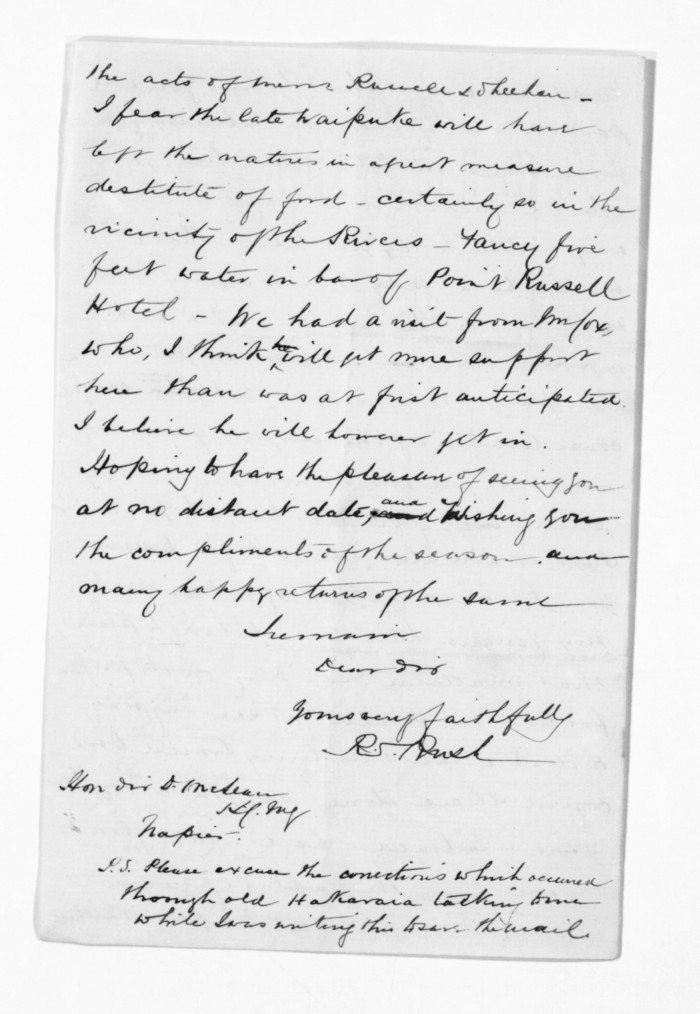 the acts of Messrs Russell & Sheehan -
I fear the late Waipuke will have
left the natives in a great measure
destitute of food - certainly so in the
vicinity of the Rivers - Fancy five
feet water in bar of Point Russell
Hotel - We had a visit from Mr Cox,
who, I think he will get more support
here than was at first anticipated.
I believe he will however get in.
Hoping to have the pleasure of seeing you
at no distant date, and wishing you
the compliments of the season and
many happy returns of the same
I remain
Dear Sir
Yours very faithfully
R. S. Bush
Hon Sir D. McLean
Napier.
P.S. Please excuse the corrections which occurred
through old Hakaraia talking to me
while I was writing this to save the mail.